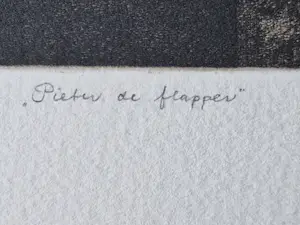 „Pieter de flapper"